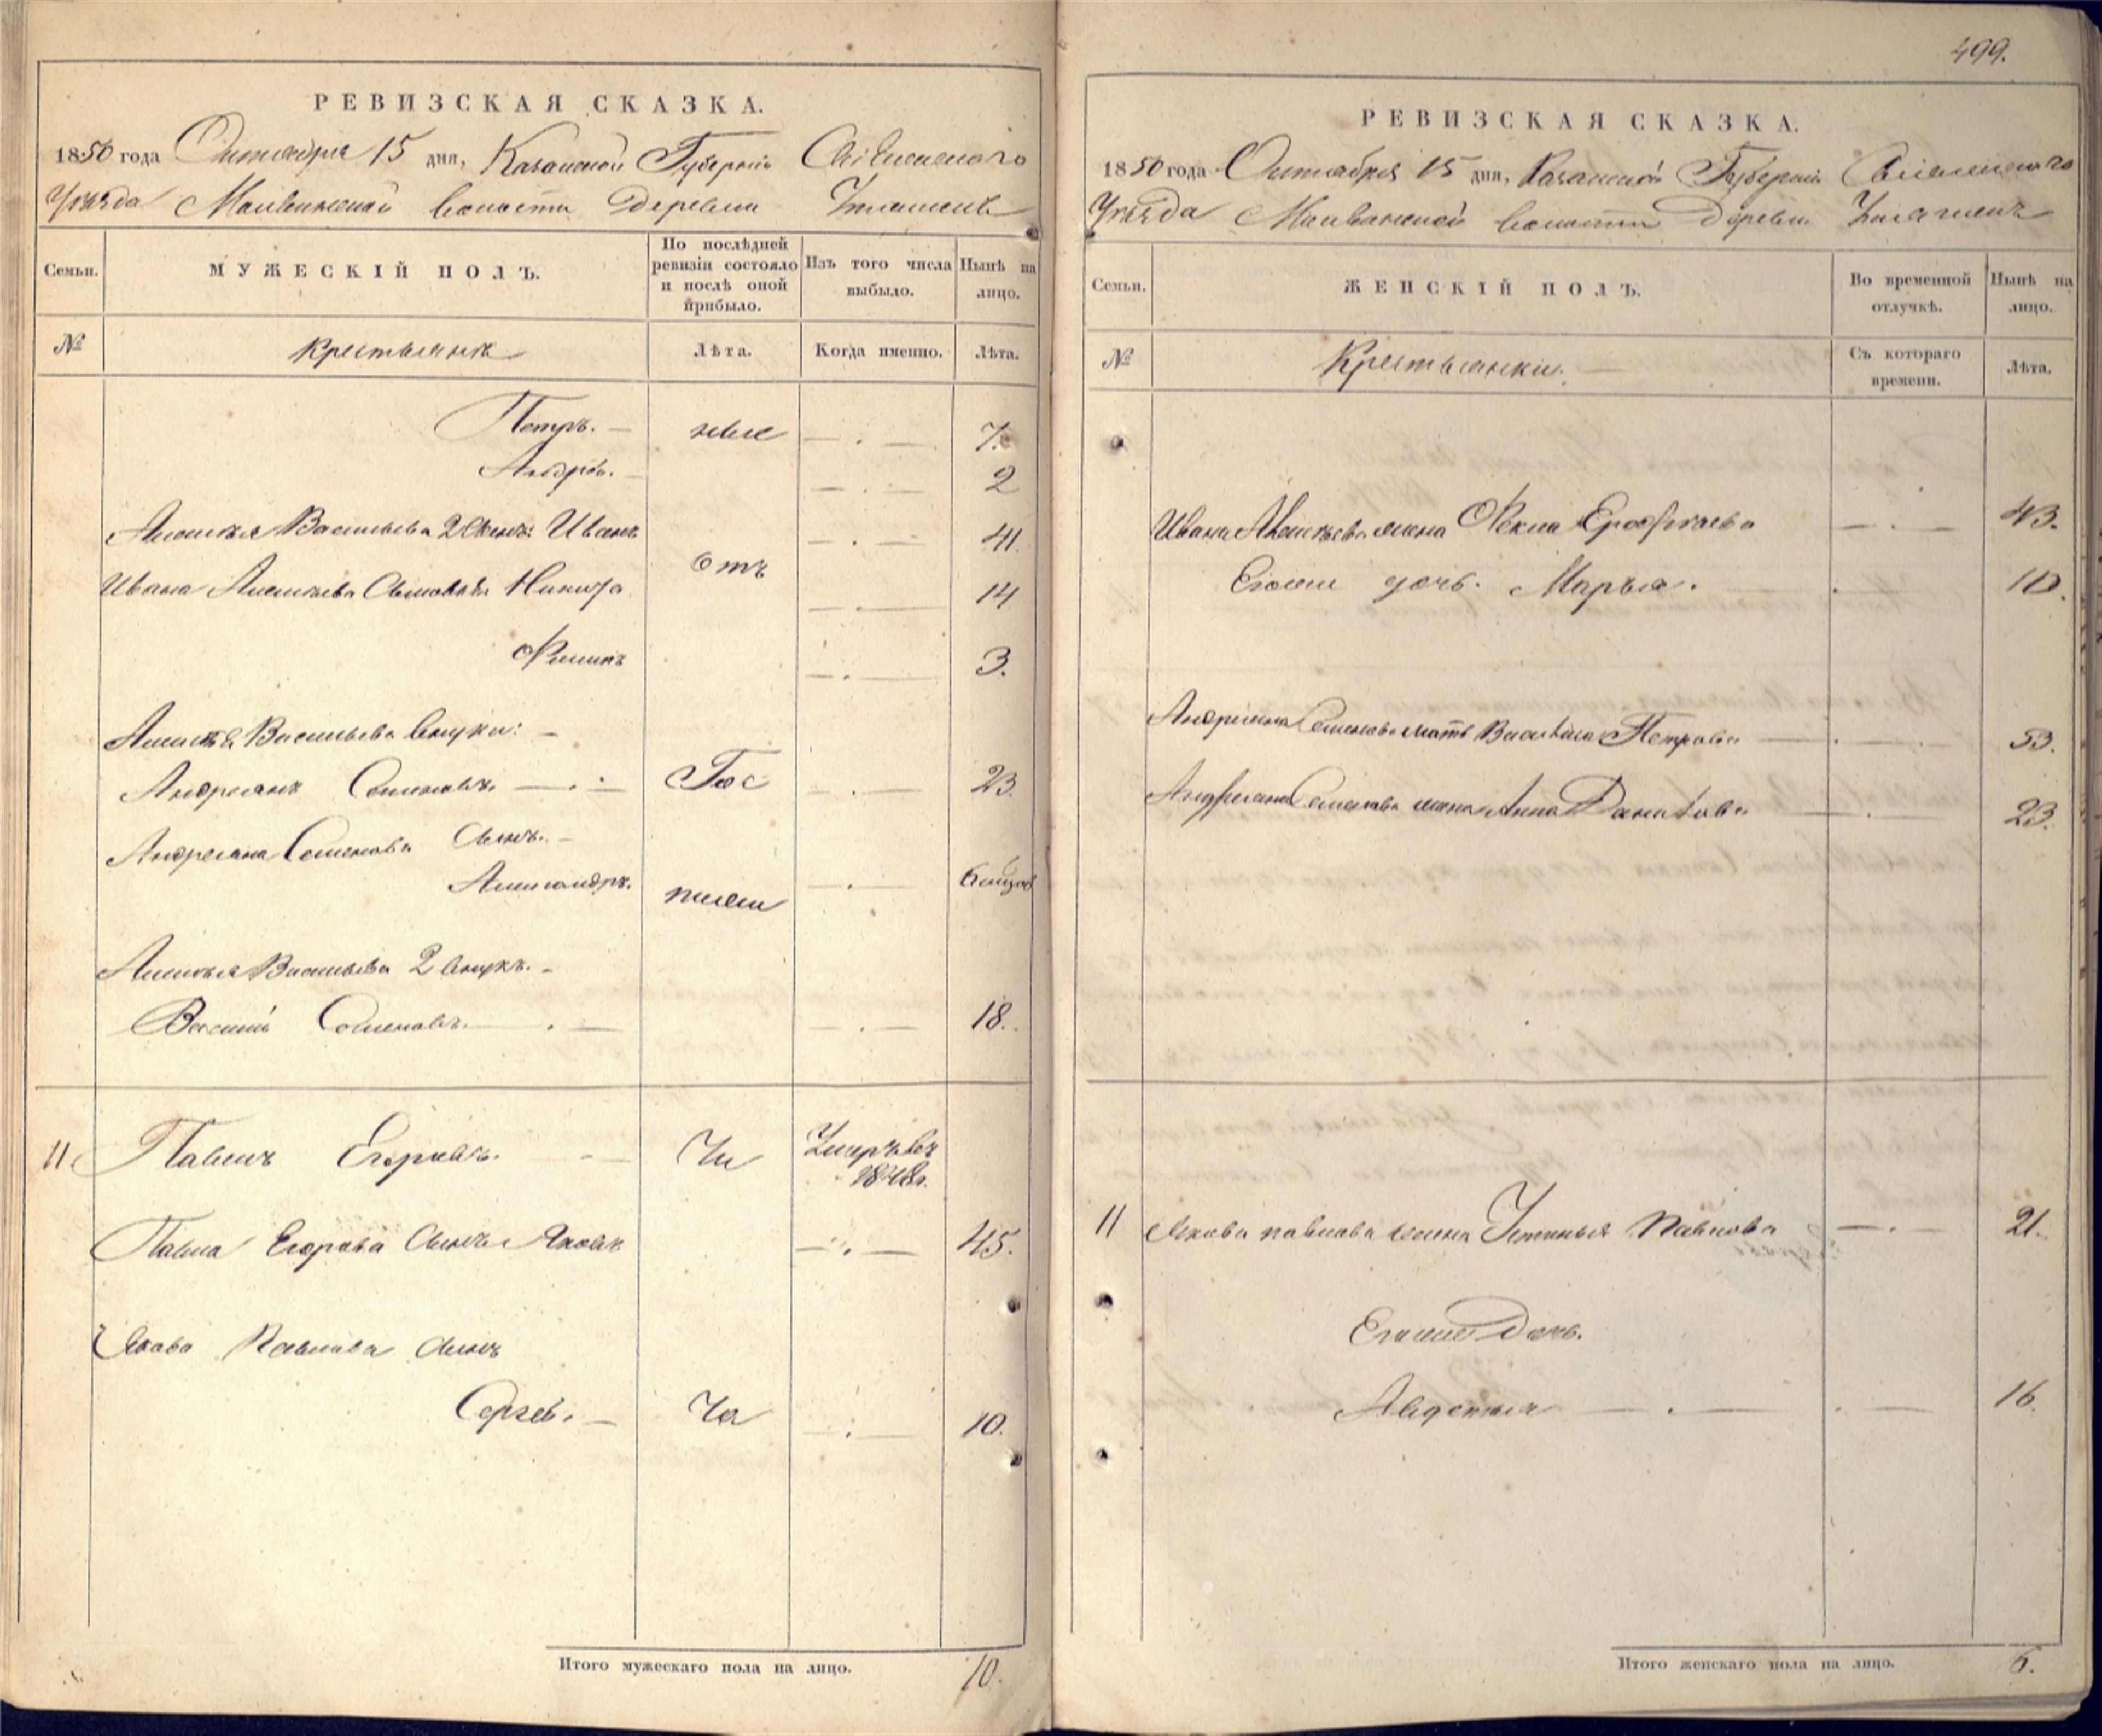 РЕВИЗСКАЯ СКАЗКА.
1850 года Октября 15 дня, Казанской Губернiи
Уѣзда волости Деревни
Семьи.
МУЖЕСКІЙ ПОЛЪ.
По послѣдней ревизіи состояло и послѣ оной прибыло.
Изъ того числа выбыло.
Нынѣ на лицо.
№
Крестьяне
Лѣта.
Когда именно.
Лѣта.
Петръ. 7.
Андрей. 2
Алексѣя Васильева 2 Сынъ: Иванъ 41.
отъ
Ивана Алексѣева Сыновья Никита 14
Филипъ 3.
Алексѣя Васильева внуки:
Андреянъ Семеновъ. 23.
Андреяна Семенова Сынъ.
Александръ.
Алексѣя Васильева 2 внукъ.
Василій Семеновъ. 18.
11. Павелъ Егоровъ. Умеръ въ 1848г.
Павла Егорова Сынъ Яковъ 45.
Якова Павлова Сынъ
Сергей. 10.
Итого мужескаго пола на лицо. 10.
499.
РЕВИЗСКАЯ СКАЗКА.
1850 года Октября 15 дня, Казанской Губерніи
Уѣзда волости Деревни
Семьи.
ЖЕНСКІЙ ПОЛЪ.
Во временной отлучкѣ.
Нынѣ на лицо.
№
Крестьянки.
Съ котораго времени.
Лѣта.
Ивана Алексѣева жена Фекла Ерофѣева 43.
Его же дочь. Марья. 10.
Андреяна Семенова мать Василиса Петрова 53.
Андреяна Семенова жена Анна Данилова 23.
11 Якова павлова жена Устинья Павлова 21.
Его же Дочь.
Авдотья 16.
Итого женскаго пола на лицо. 6.